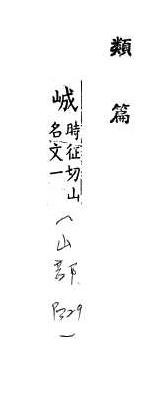 類篇
峸時征切山名文一(山部P329)